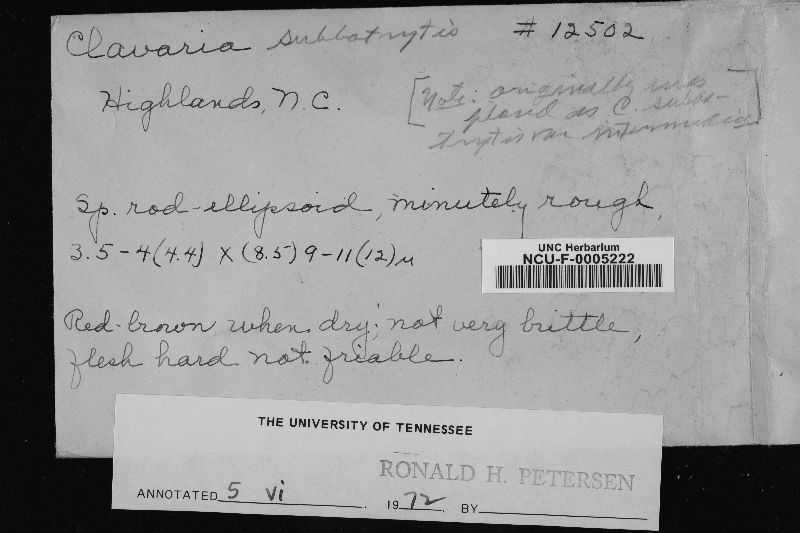 Clavaria subbotrytis # 12502
Highlands, N.C.
[Note: originally was
placed as C. subbo-
trytis var intermedia]
Sp. rod-ellipsoid, minutely rough,
3.5-4(4.4) X (8.5) 9-11(12) μ
UNC Herbarium
NCU-F-0005222
Red-brown when dry; not very brittle,
flesh hard not friable.
THE UNIVERSITY OF TENNESSEE
RONALD H. PETERSEN
ANNOTATED 5 vi 1972 BY